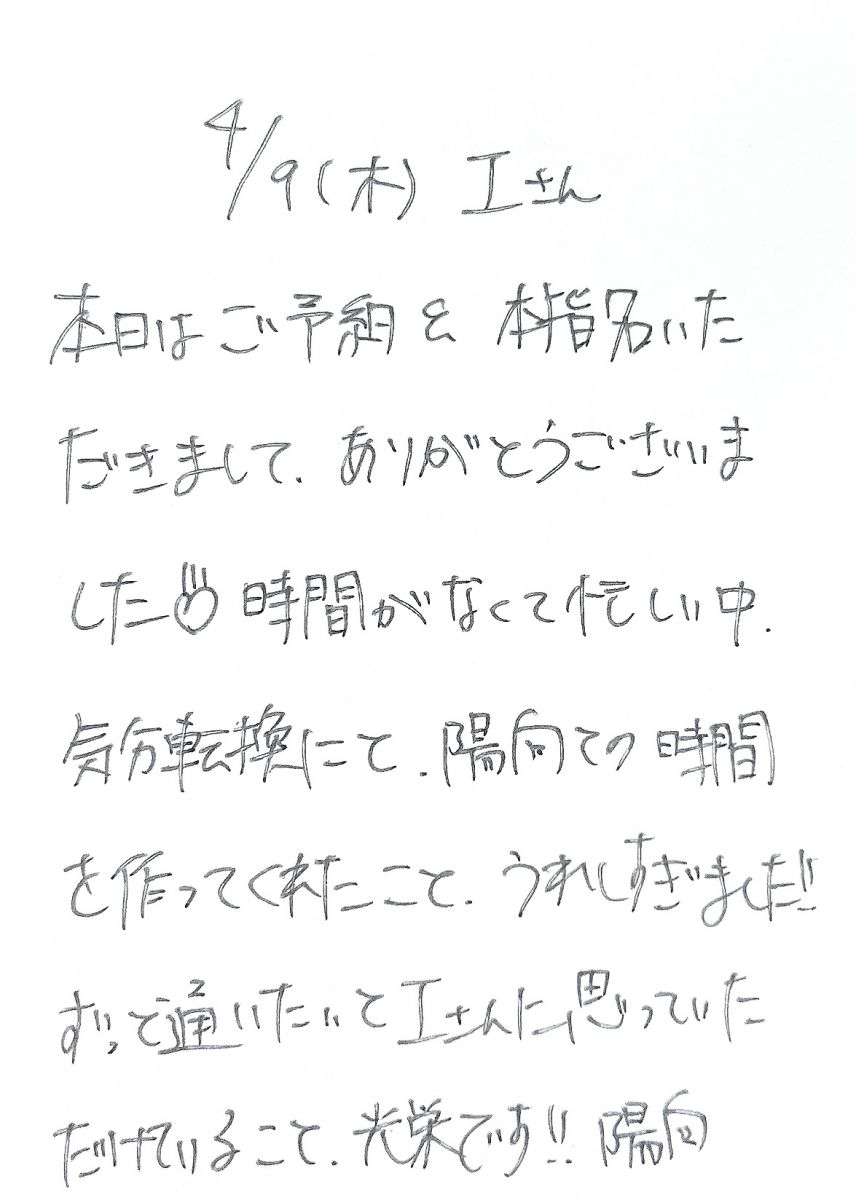 4/9(木) Iさん
本日はご予約&本指名いた
だきまして、ありがとうございま
した♡ 時間がなくて忙しい中、
気分転換にて、陽向での時間
を作ってくれたこと、うれしすぎました!!
ずっと通いたいとIさんに思っていた
だけていること、光栄です!! 陽向